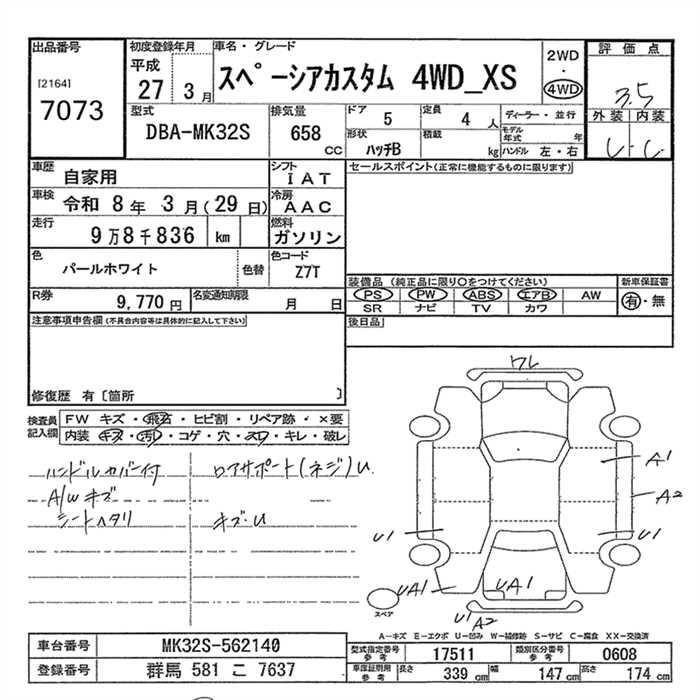 出品番号
[2164]
7073
初度登録年月
平成
27 3月
車名・グレード
スペーシアカスタム 4WD_XS
2WD
・
4WD
評価点
3.5
外装 内装
型式
DBA-MK32S
排気量
658
CC
ドア
5
定員
4 人
ディーラー・並行
形状
ハッチB
積載
kg
モデル年式 年
ハンドル 左・右
車歴
自家用
シフト
IAT
セールスポイント(正常に機能するものに限ります)
車検
令和 8年 3月(29日)
冷房
AAC
走行
9万8千836 km
燃料
ガソリン
色
パールホワイト
色替
色コード
Z7T
装備品 (純正品に限り○をつけてください)
PS PW ABS エアB AW
SR ナビ TV カワ
新車保証書
有・無
R券
9,770円
名変通知期限
月 日
後日品
注意事項申告欄(不具合内容等は具体的に記入して下さい)
修復歴 有〔箇所 〕
検査員記入欄
FW キズ・飛石・ヒビ割・リペア跡・×要
内装 キズ・汚レ・コゲ・穴・スレ・キレ・破レ
ハンドルカバー付
A/Wキズ
シートヘタリ
ロアサポート(ネジ)U
キズ・U
ワレ
A1
A2
U1
U1
UA1
UA1
U1
A2
スペア
A-キズ E-エクボ U-凹み W-補修跡 S-サビ C-腐食 XX-交換済
車台番号
MK32S-562140
登録番号
群馬 581 こ 7637
型式指定番号
参考
17511
類別区分番号
参考
0608
車庫証明用
参考
長さ
339 cm
幅
147 cm
高さ
174 cm